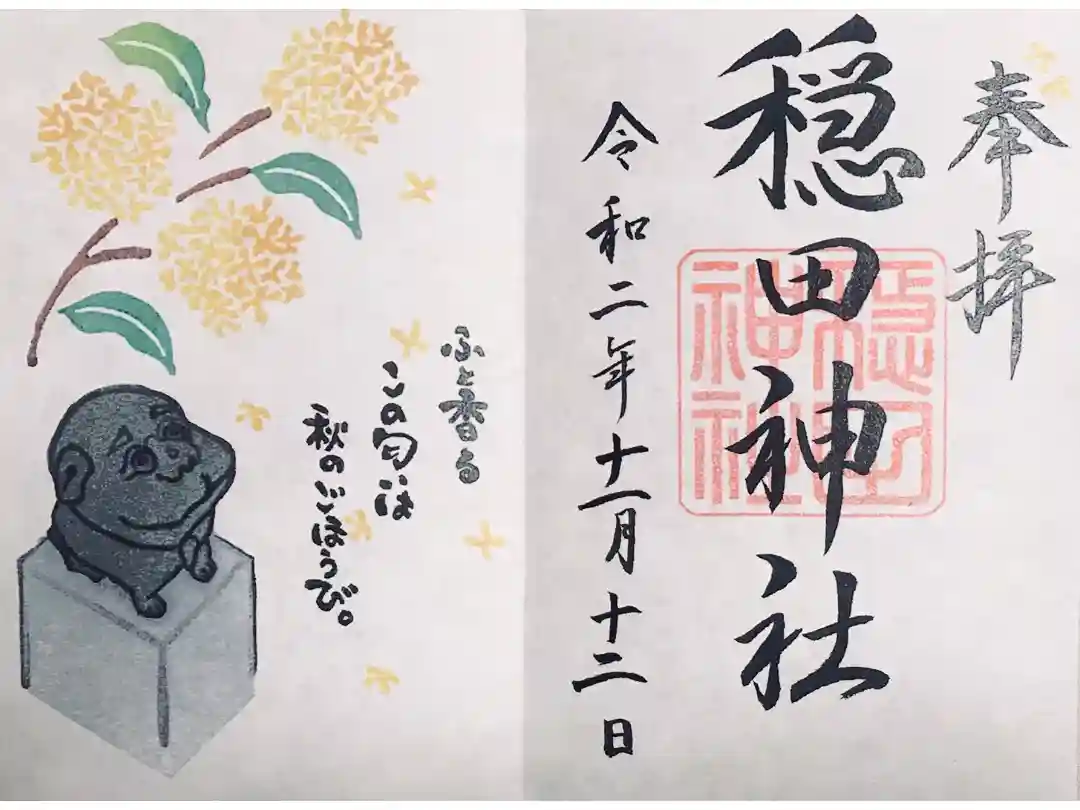 奉拝
穏田神社
穏田神社
令和二年十一月十二日
ふと香る
この匂は
秋のごほうび。